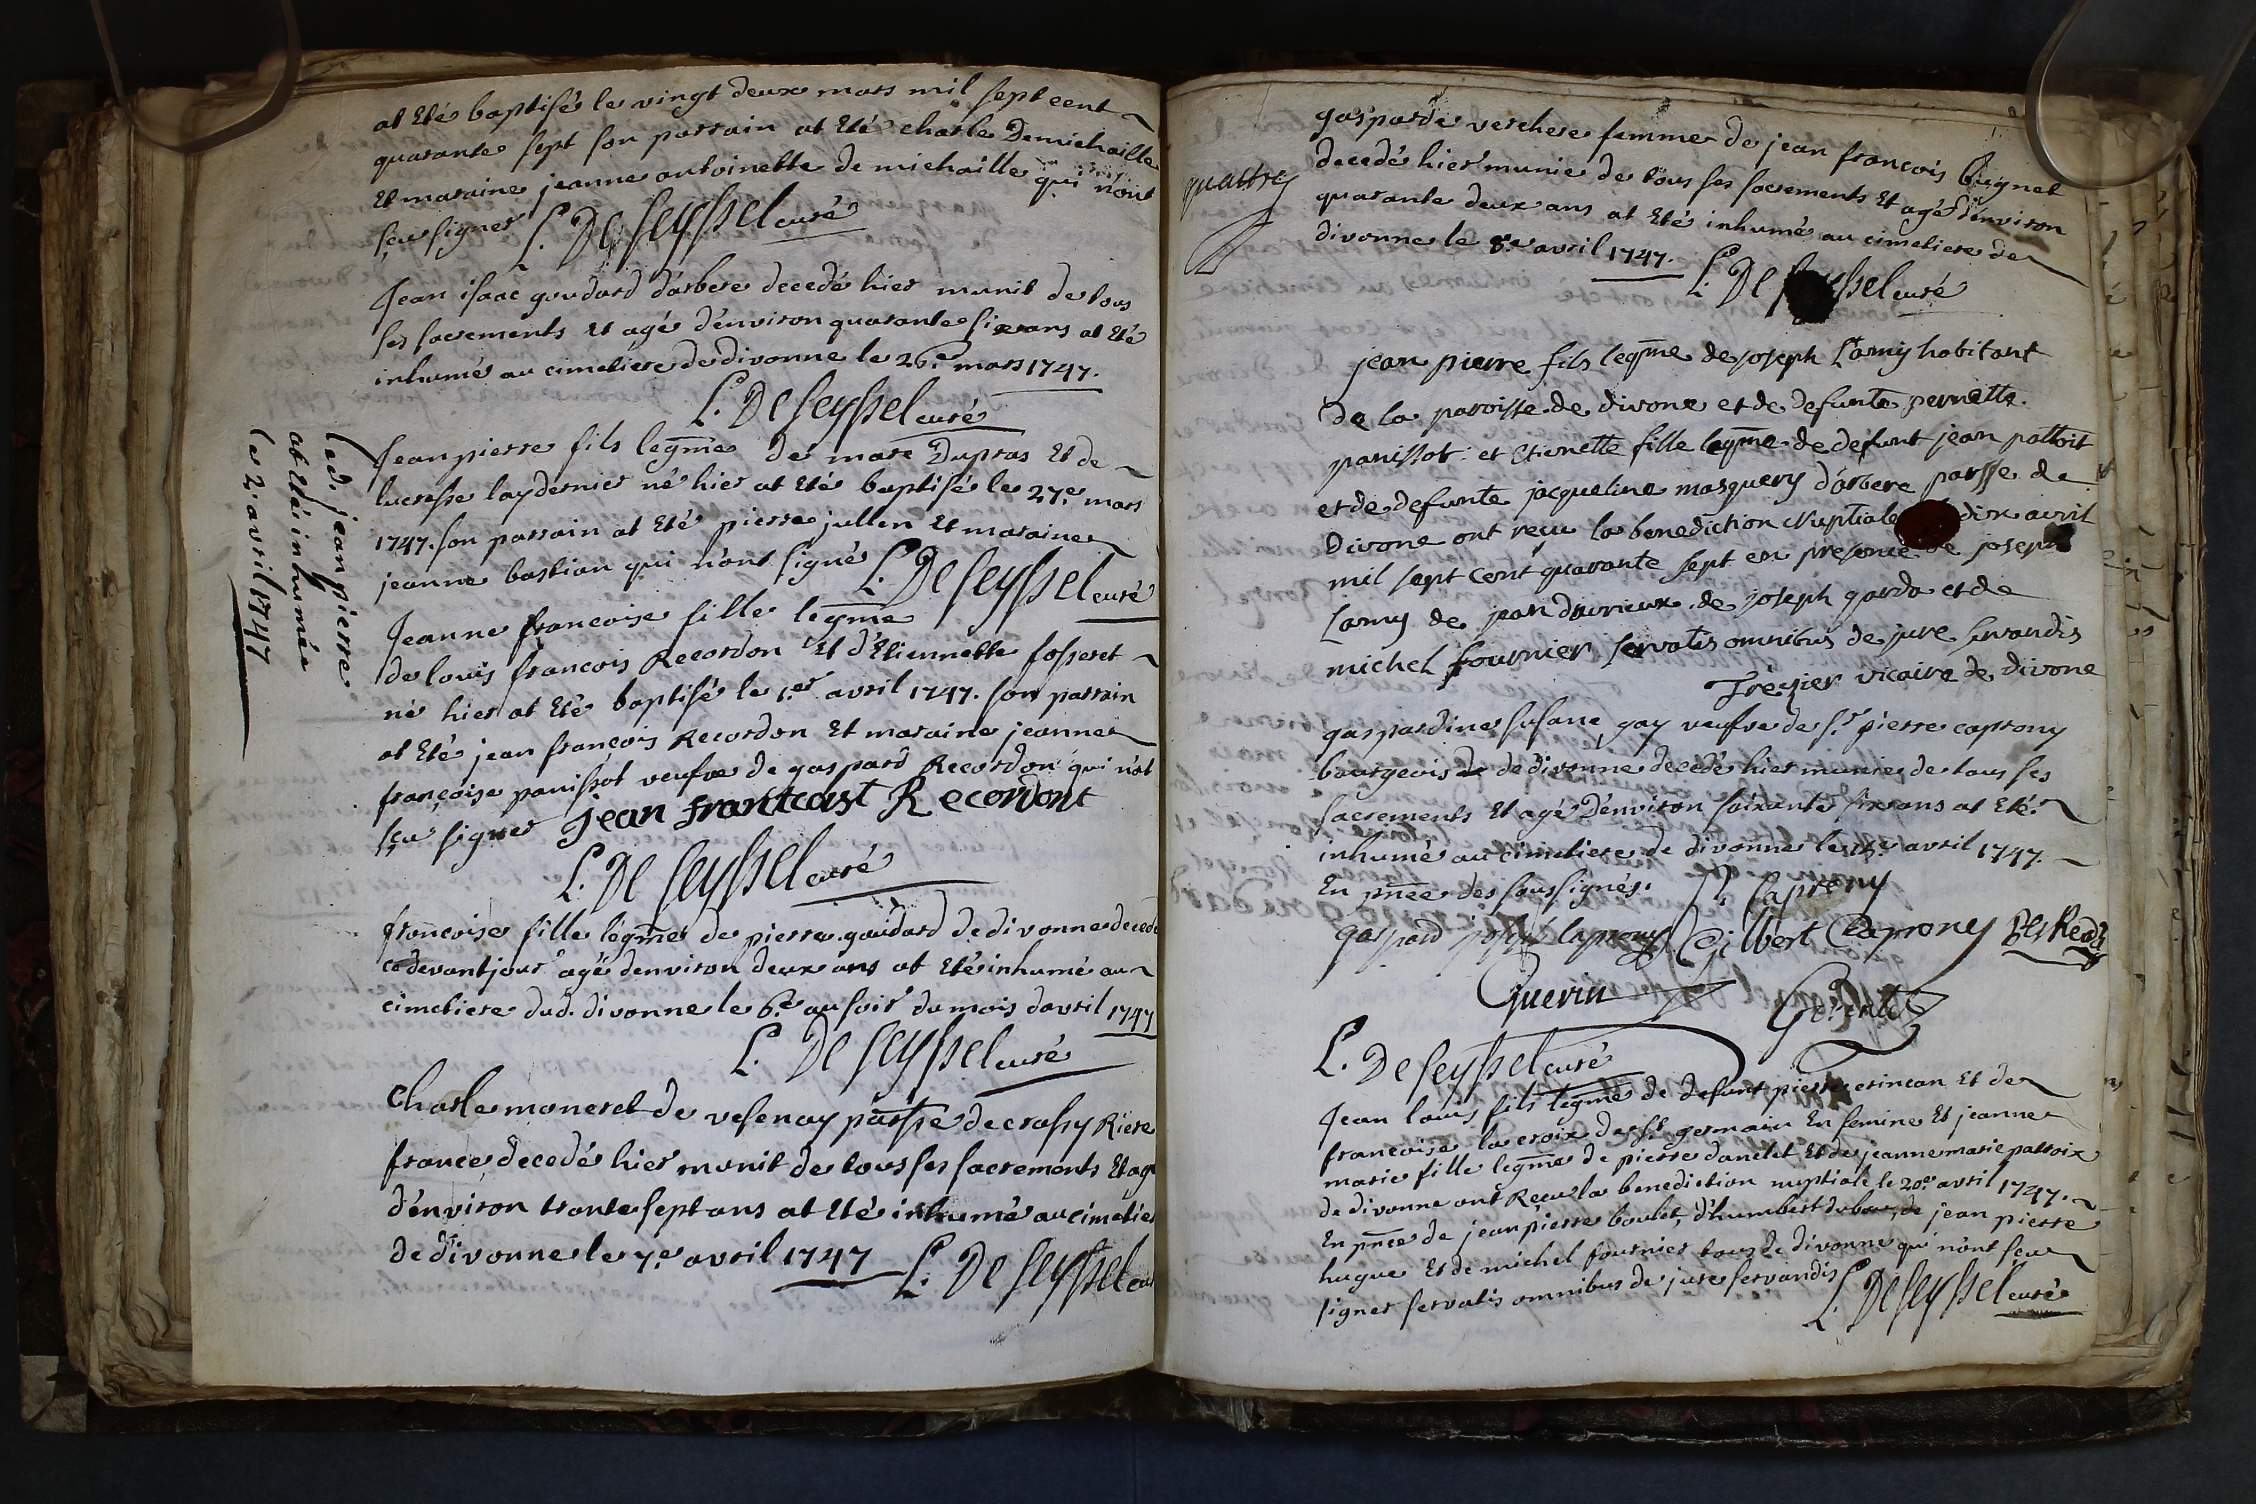 at Eté baptisé le vingt deux mars mil sept cent
quarante sept son parrain at Eté charle Demichaille
Et maraine jeanne antoinette de michaille qui n'ont
sçu signer L. De seyssel curé
Jean isaac goudard d'arbere decedé hier munit de tous
ses sacrements et agé d'environ quarante six ans at Eté
inhumé au cimetiere de divonne le 26.e mars 1747.
L. De seyssel curé
Jean pierre fils legme de marc Dupras Et de
lucresse laydernier né hier at Eté baptisé le 27.e mars
1747. son parrain at Eté pierre jullien Et maraine
jeanne bastian qui n'ont signé L. De seyssel curé
Jeanne francoise fille legme
de louis francois Recordon Et d'Etiennette fosseret
né hier at Eté baptisé le 1.er avril 1747. son parrain
at Eté jean francois Recordon Et maraine jeanne
françoise panissot veufve de gaspard Recordon qui n'at
sçu signer Jean frantcoist Recordont
L. De seyssel curé
francoise fille legme de pierre goudard de divonne decedé
ce devant jour agé denviron deux ans at Eté inhumé au
cimetiere dud. divonne le 6.e au soir du mois davril 1747
L. De seyssel curé
Charle moneret de vesenay parsse de crassy Riere
france decedé hier munit de tous ses sacrements Et agé
d'environ trante sept ans at Eté inhumé au cimetier
de divonne le 7.e avril 1747 L. De seyssel cu
led. jean pierre
at eté inhumée
le 2. avril 1747
quattre
gasparde verchere femme de jean francois Bugnet
decedé hier munie de tous ses sacrements Et agé d'environ
quarante deux ans at Eté inhumé au cimetiere de
divonne le 8.e avril 1747.
L. De seyssel curé
jean pierre fils legme de joseph Lamy habitant
de la paroisse de divone et de defunte pernette
panissot: et Etienette fille legme de defunt jean pattoit
et de defunte jacqueline masquery d'arbere parsse de
Divone ont reçu la benediction Nuptiale dix avril
mil sept cent quarante sept en presence de joseph
Lamy de jean duvrieux de joseph garda et de
michel fournier servatis omnibus de jure servandis
Trézier vicaire de divone
gaspardine susane gay veufve de sr. pierre caprony
bourgeois de divonne decedé hier munie de tous ses
sacrements Et agé D'environ soixante six ans at Eté
inhumé au cimetiere de divonne le avril 1747.
En pnce des soussignés. Caprony
gaspard joseph Caprony Gilbert Caprony
Guerin
L. De seyssel curé
Jean louis fils legme de defunt pierre crincan Et de
francoise lacroix de st. germain En semine Et jeanne
marie fille legme de pierre danclet Et de jeanne marie pattoix
de divonne ont Reçu la benediction nuptiale le 20.e avril 1747.
En pnce de jean pierre boulet, d'humbert dubou, de jean pierre
hugue Et de michel fournier tous de divonne qui n'ont sçu
signer servatis omnibus de jure servandis
L. De seyssel curé